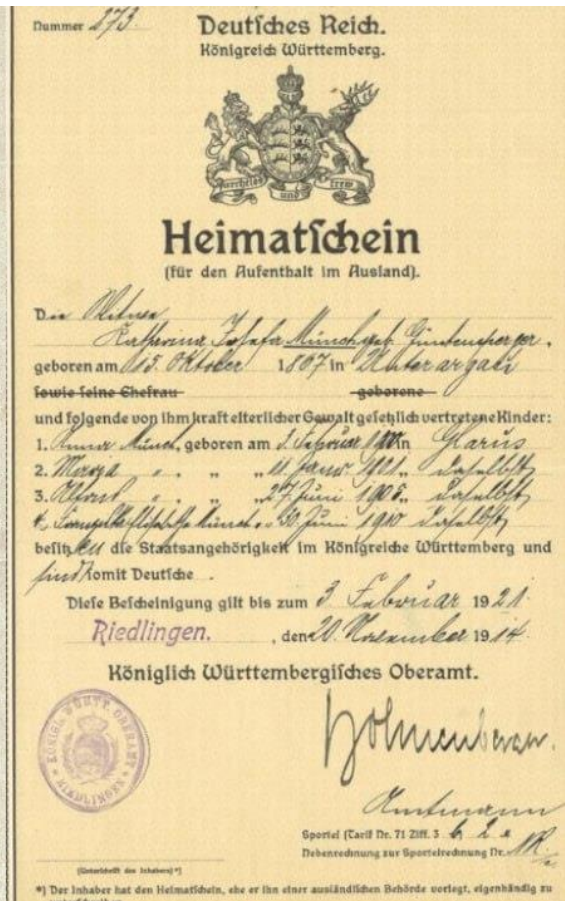 Nummer 273.
Deutsches Reich.
Königreich Württemberg.
Furchtlos und trew
Heimatschein
(für den Aufenthalt im Ausland).
Die Witwe
Katharina Josefa Münch geb.
geboren am 15. Oktober 1867 in
sowie seine Ehefrau geborene
und folgende von ihm kraft elterlicher Gewalt gesetzlich vertretene Kinder:
1. Anna Münch, geboren am 3. Februar in Glarus
2. " . " " 11. " daselbst
3. Alfons " . " " 27. Juni 1905 " daselbst
4. Münch " 30. Juni 1910 daselbst
besitzen die Staatsangehörigkeit im Königreiche Württemberg und
sind somit Deutsche .
Diese Bescheinigung gilt bis zum 3. Februar 1921.
Riedlingen. , den 20. November 1914
Königlich Württembergisches Oberamt.
KÖNIGL. WÜRTT. OBERAMT RIEDLINGEN
Amtmann
Sportel (Tarif Nr. 71 Ziff. 3 b 2 a
Nebenrechnung zur Sportelrechnung Nr.
(Unterschrift des Inhabers) *)
*) Der Inhaber hat den Heimatschein, ehe er ihn einer ausländischen Behörde vorlegt, eigenhändig zu